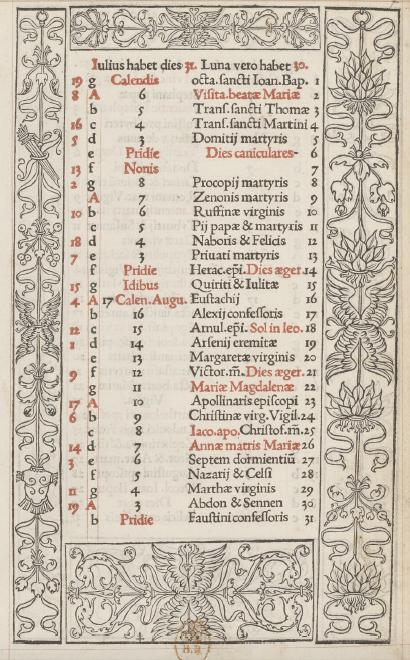 Iulius habet dies 31. Luna vero habet 30.
19 g Calendis octa. sancti Ioan. Bap. 1
8 A 6 Visita. beatæ Mariæ 2
b 5 Trans. sancti Thomæ 3
16 c 4 Trans. sancti Martini 4
5 d 3 Domitij martyris 5
e Pridie Dies caniculares- 6
13 f Nonis 7
2 g 8 Procopij martyris 8
A 7 Zenonis martyris 9
10 b 6 Ruffinæ virginis 10
c 5 Pij papæ & martyris 11
18 d 4 Naboris & Felicis 12
7 e 3 Priuati martyris 13
f Pridie Herac. ep̄i. Dies æger. 14
15 g Idibus Quiriti & Iulitæ 15
4 A 17 Calen. Augu. Eustachij 16
b 16 Alexij confessoris 17
12 c 15 Arnul. ep̄i. Sol in leo. 18
1 d 14 Arsenij eremitæ 19
e 13 Margaretæ virginis 20
9 f 12 Victor. m̄. Dies æger. 21
g 11 Mariæ Magdalenæ 22
17 A 10 Apollinaris episcopi 23
6 b 9 Christinæ virg. Vigil. 24
c 8 Iaco. apo. Christof. m̄. 25
14 d 7 Annæ matris Mariæ 26
3 e 6 Septem dormientiū 27
f 5 Nazarij & Celsi 28
11 g 4 Marthæ virginis 29
19 A 3 Abdon & Sennen 30
b Pridie Faustini confessoris 31